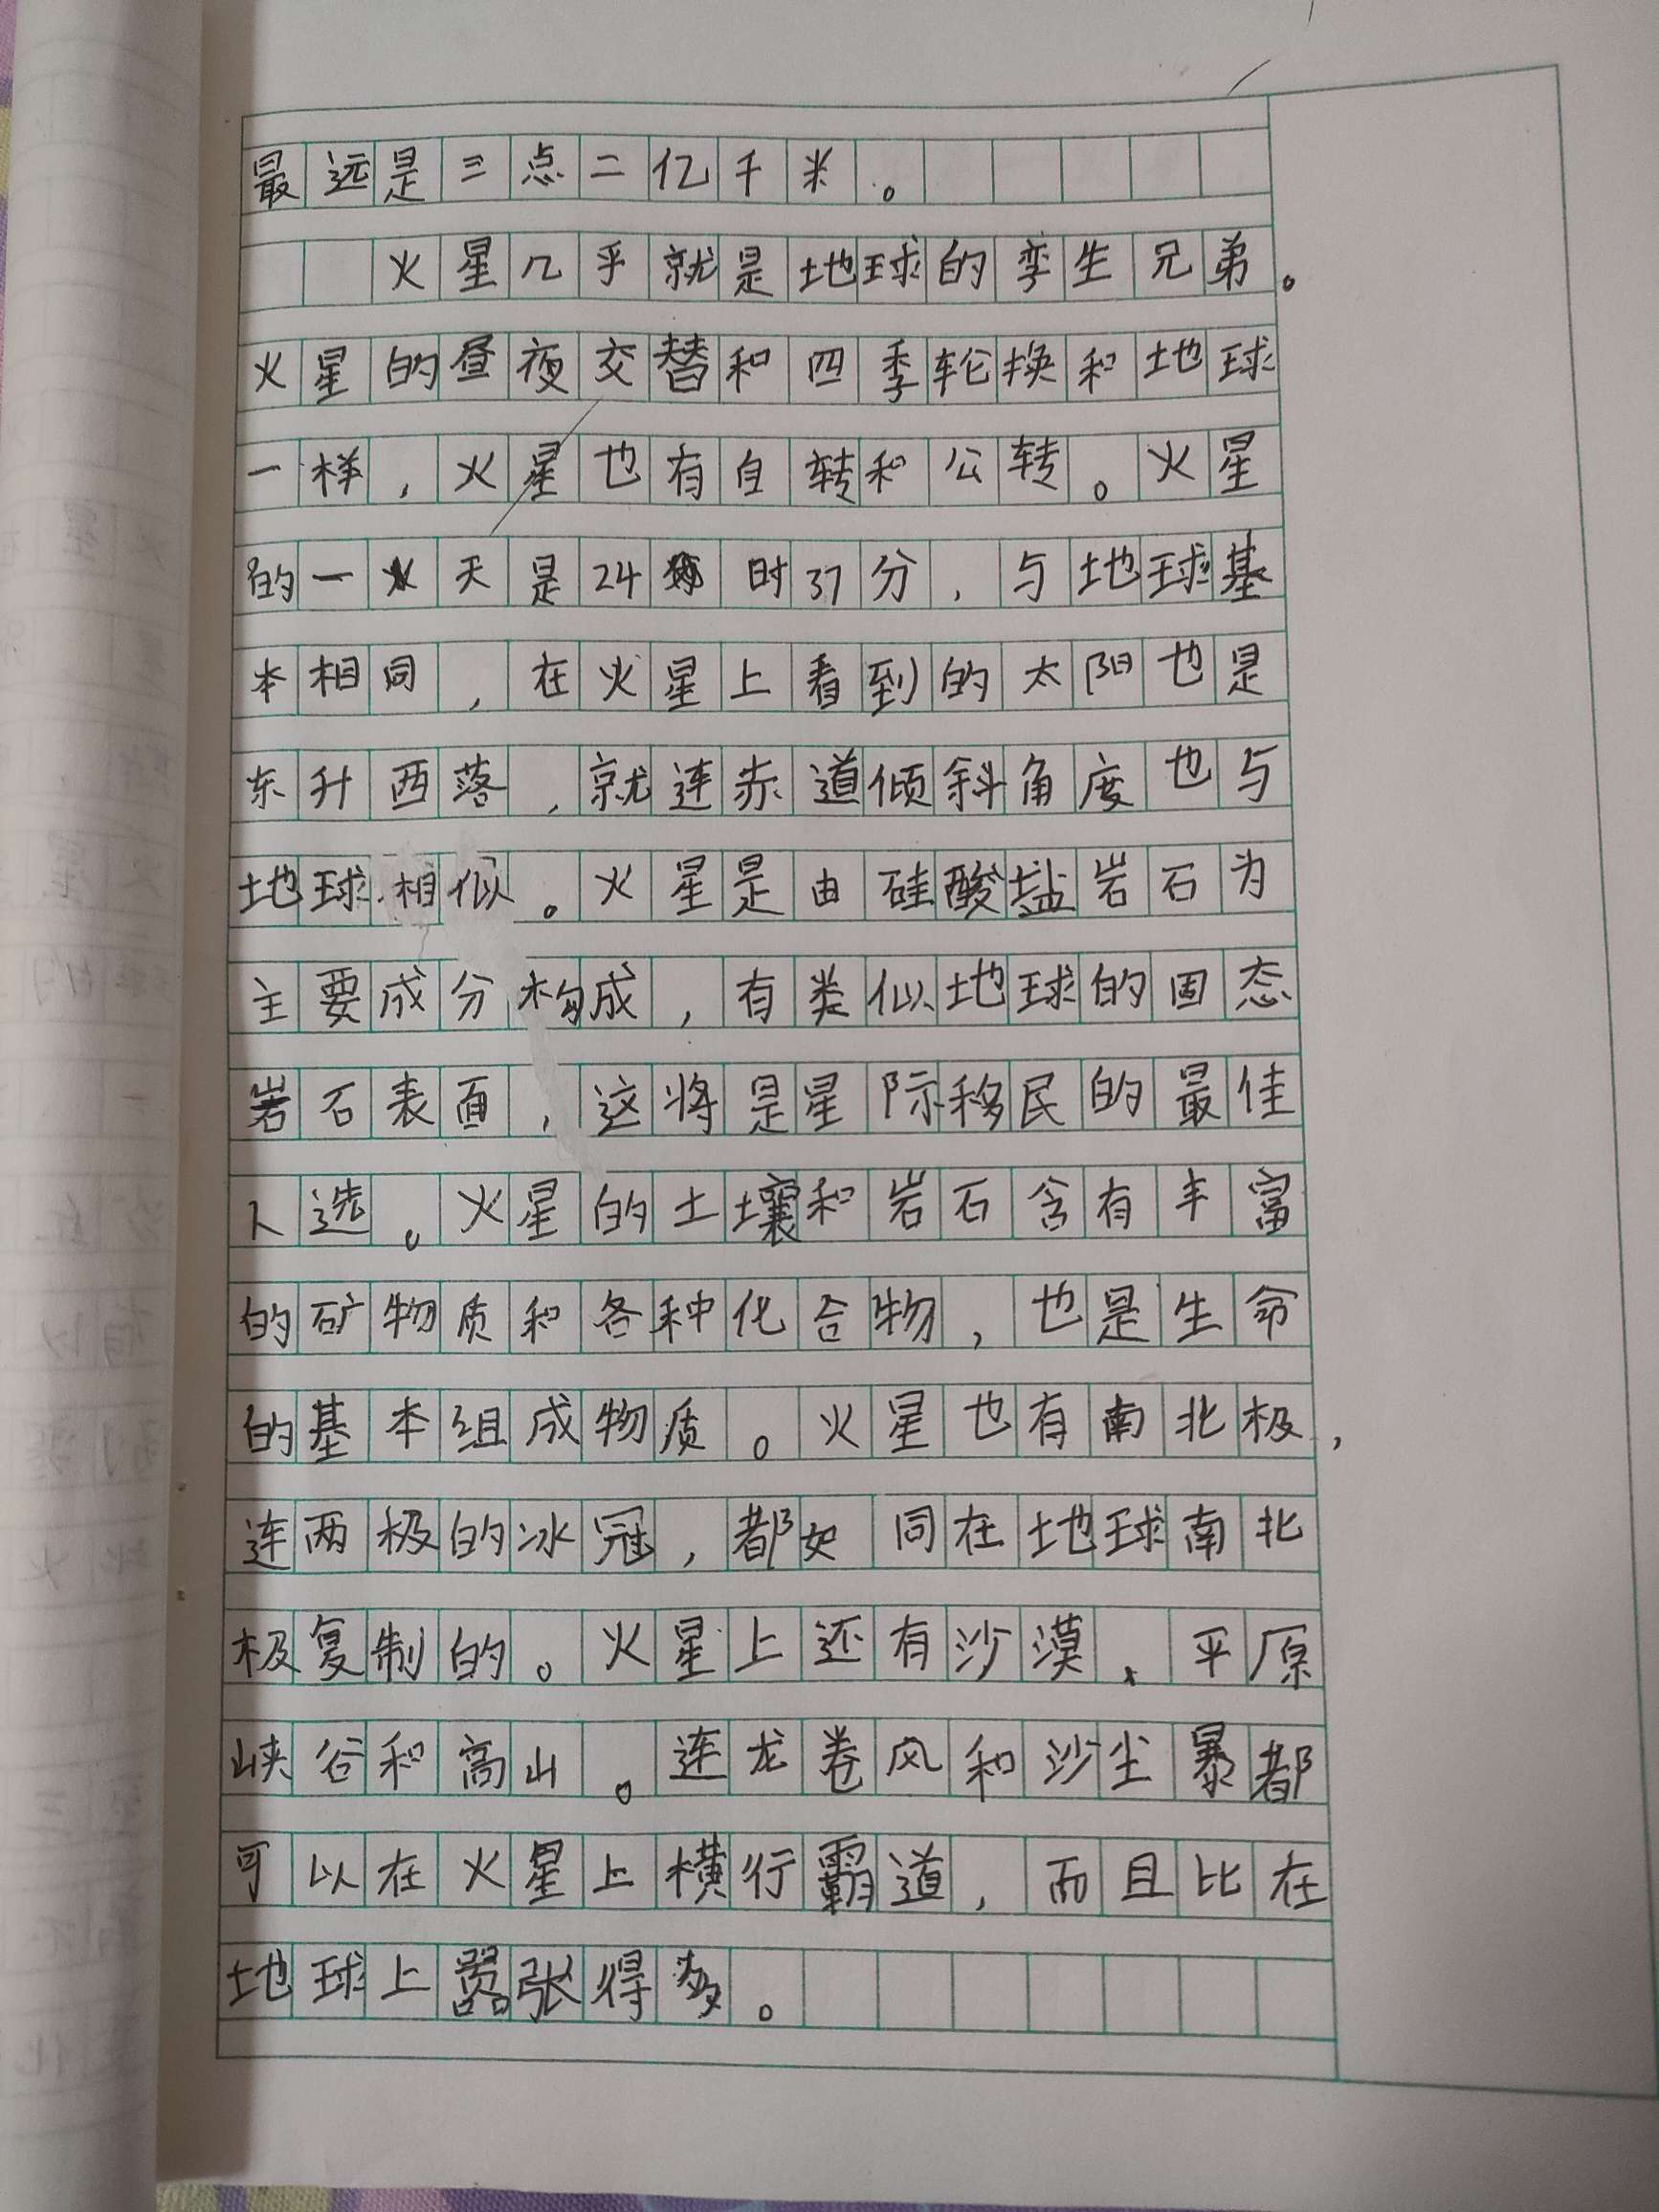 最远是三点二亿千米。
火星几乎就是地球的孪生兄弟。
火星的昼夜交替和四季轮换和地球
一样，火星也有自转和公转。火星
的一天是24时37分，与地球基
本相同，在火星上看到的太阳也是
东升西落，就连赤道倾斜角度也与
地球相似。火星是由硅酸盐岩石为
主要成分构成，有类似地球的固态
岩石表面，这将是星际移民的最佳
人选。火星的土壤和岩石含有丰富
的矿物质和各种化合物，也是生命
的基本组成物质。火星也有南北极，
连两极的冰冠，都如同在地球南北
极复制的。火星上还有沙漠、平原
峡谷和高山。连龙卷风和沙尘暴都
可以在火星上横行霸道，而且比在
地球上嚣张得多。